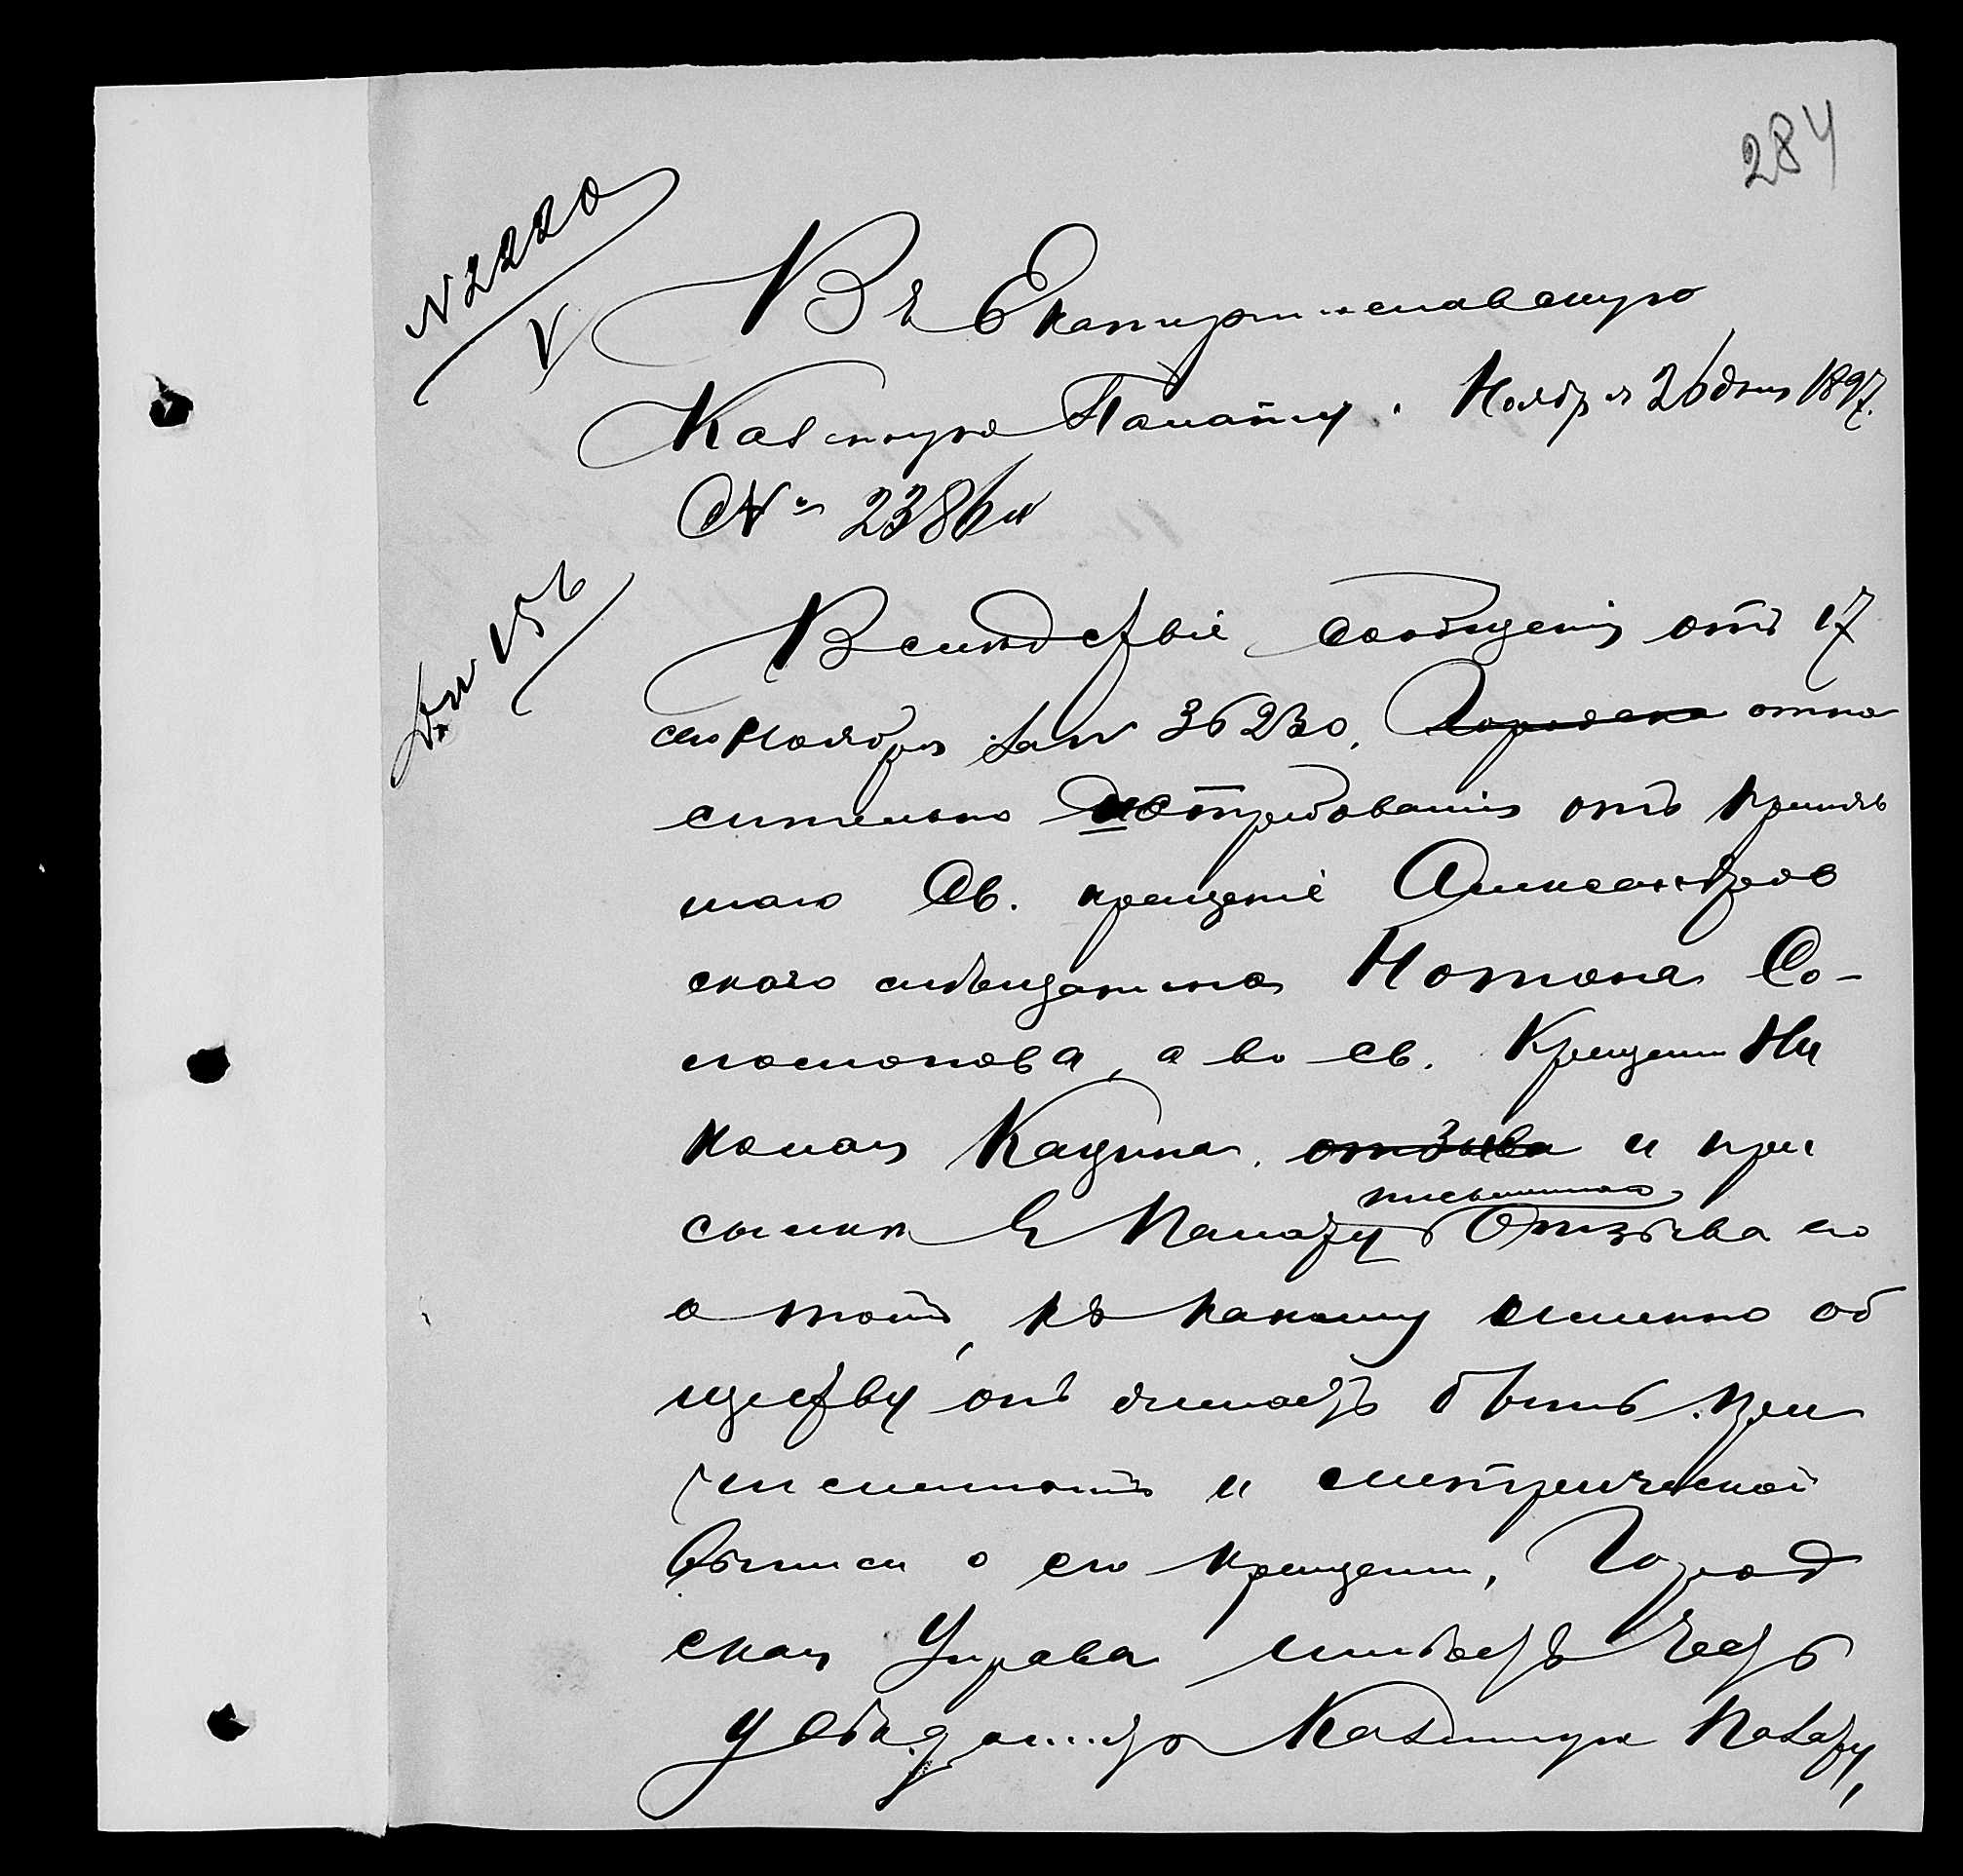 284
№ 2220
V
Въ Екатеринославскую
Казенную Палату. Ноября 26 дня 1897.
№ 2386
156
Вследствіе сообщенія отъ 17
сего Ноября за № 36230, Городска отно
сительно истребованія отъ приняв
шаго Св. крещеніе Александров
скаго мѣщанина Нотона Со-
ломонова, а во св. Крещеніи Ни
колая Кацина, отзыва и при
сылки въ Палату письменнаго Отзыва его
о томъ, къ какому именно об
ществу онъ желаетъ быть при
численнымъ и метрической
выписи о его крещеніи, Город
ская Управа имѣетъ честь
увѣдомить Казенную Палату,